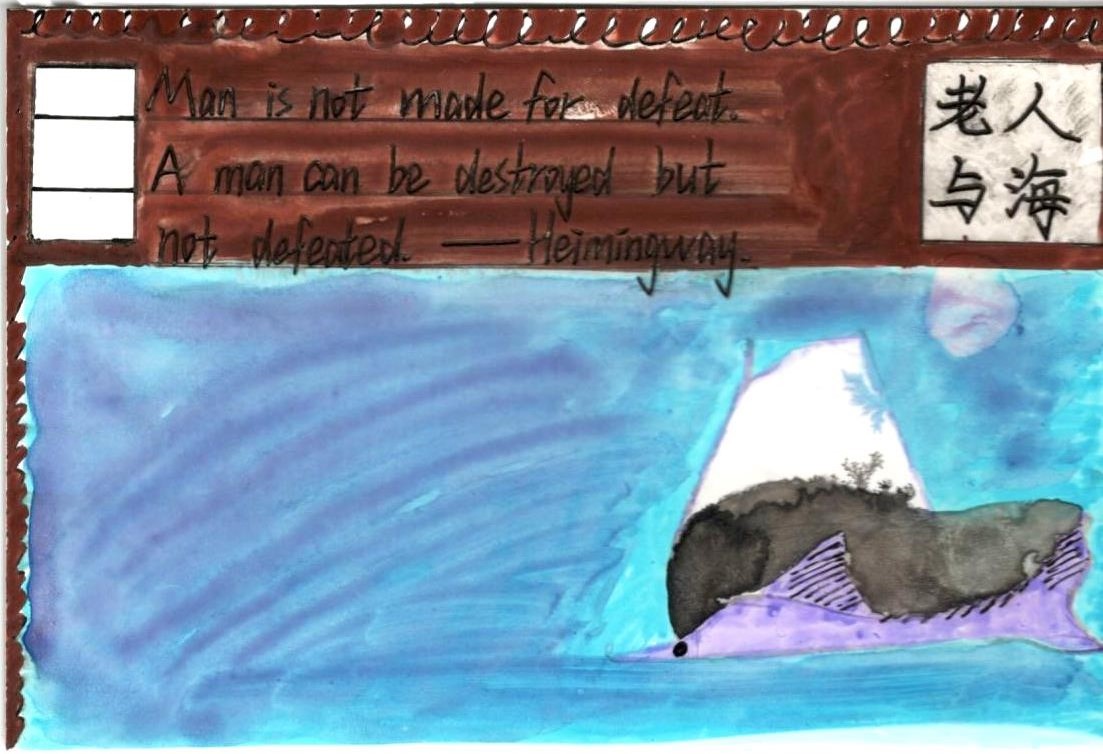 Man is not made for defeat.
A man can be destroyed but
not defeated. ——Heimingway.
老人
与海